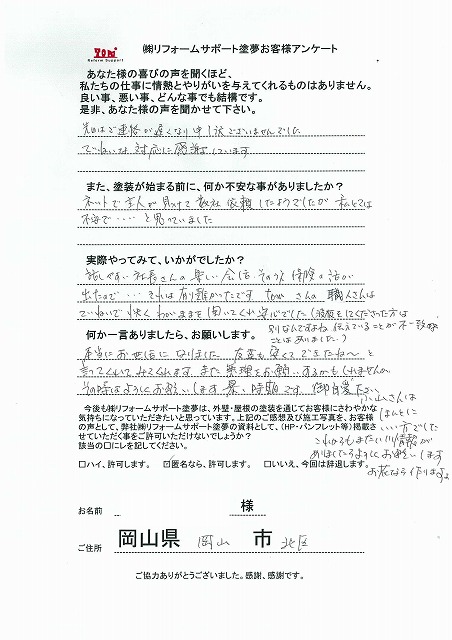 Yomi
Reform Support
㈱リフォームサポート塗夢お客様アンケート
あなた様の喜びの声を聞くほど、
私たちの仕事に情熱とやりがいを与えてくれるものはありません。
良い事、悪い事、どんな事でも結構です。
是非、あなた様の声を聞かせて下さい。
先日はご連絡が遅くなり申し訳ございませんでした
ていねいな対応に感謝しています
また、塗装が始まる前に、何か不安な事がありましたか？
ネットで主人が見つけて数社依頼したようでしたが私としては
不安で・・・・と思っていました
実際やってみて、いかがでしたか？
話しやすい社長さんの楽しい会話 そのうえ保険の話が
出たので・・ それは有り難かったです tomuさんの職人さんは
ていねいで快くわがままを聞いてくれ安心でした
別なんですよね 伝えていることが不一致な
ことはありました。)
何か一言ありましたら、お願いします。
本当にお世話になりました 友達も安くてできたね～と
言ってくれています また
その時はよろしくお願いします 暑い時期です 御自愛下さい
さんは
ほんとに
いい方でした
これからもまたいい情報が
ありましたらよろしくお願いします
今後も㈱リフォームサポート塗夢は、外壁・屋根の塗装を通じてお客様にさわやかな
気持ちになっていただきたいと思っています。上記のご感想及び施工写真を、お客様
の声として、弊社㈱リフォームサポート塗夢の資料として、（HP・パンフレット等）掲載さ
せていただく事をご許可いただけないでしょうか？
該当の□にレを記してください。
□ハイ、許可します。 ☑匿名なら、許可します。 □いいえ、今回は辞退します。
お名前 様
ご住所 岡山県 岡山 市 北区
ご協力ありがとうございました。感謝、感謝です。